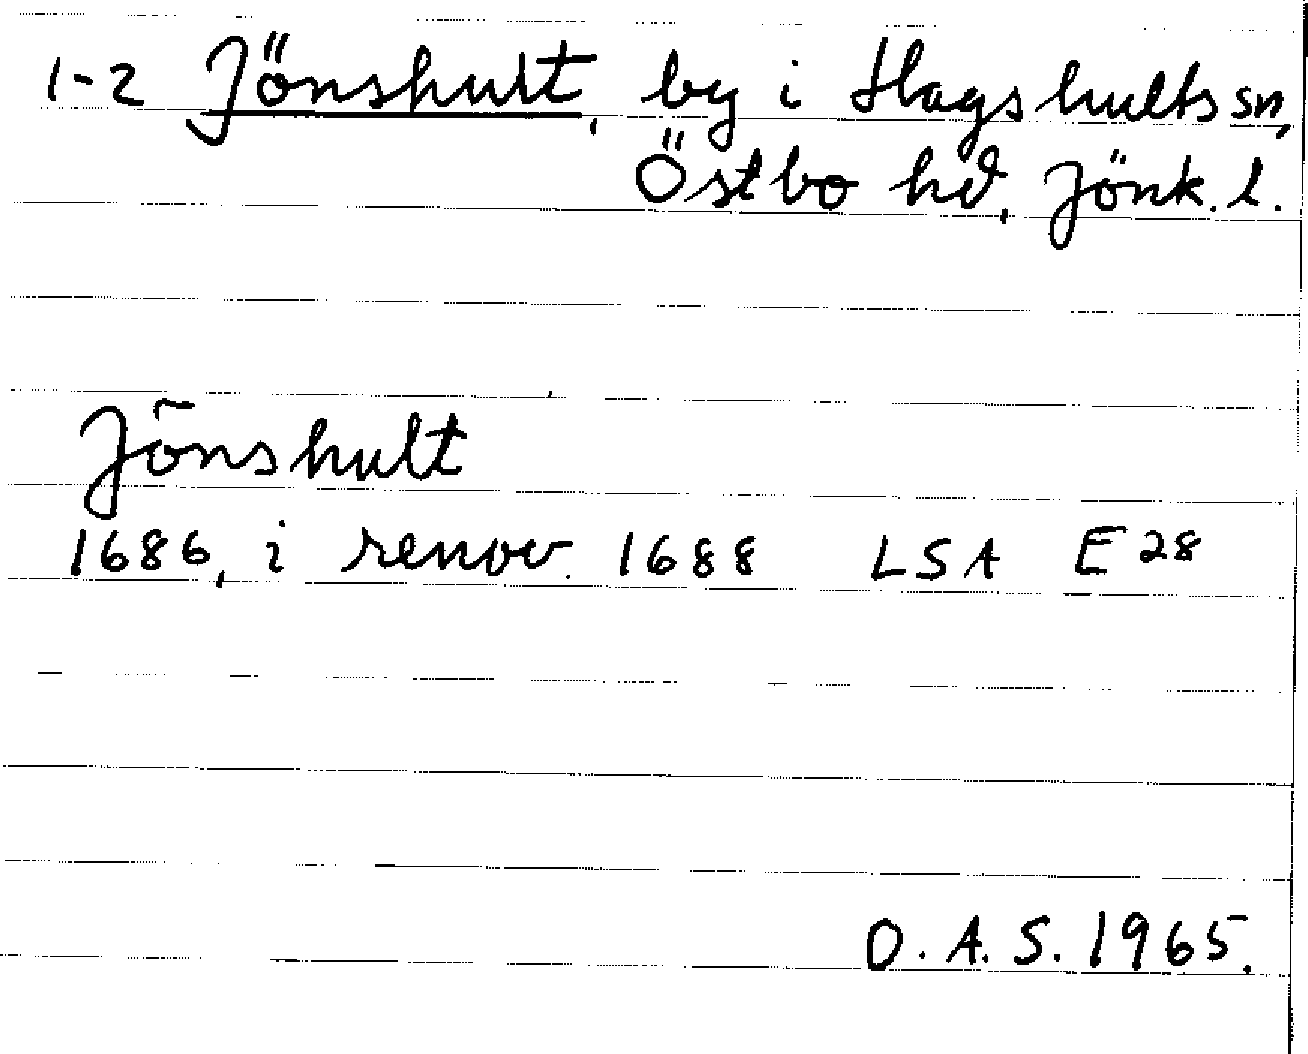 1-2 Jönshult, by i Hagshults sn,
Östbo hd, Jönk. l.
Jönshult
1686, i renov. 1688 LSA E 28
O.A.S. 1965.